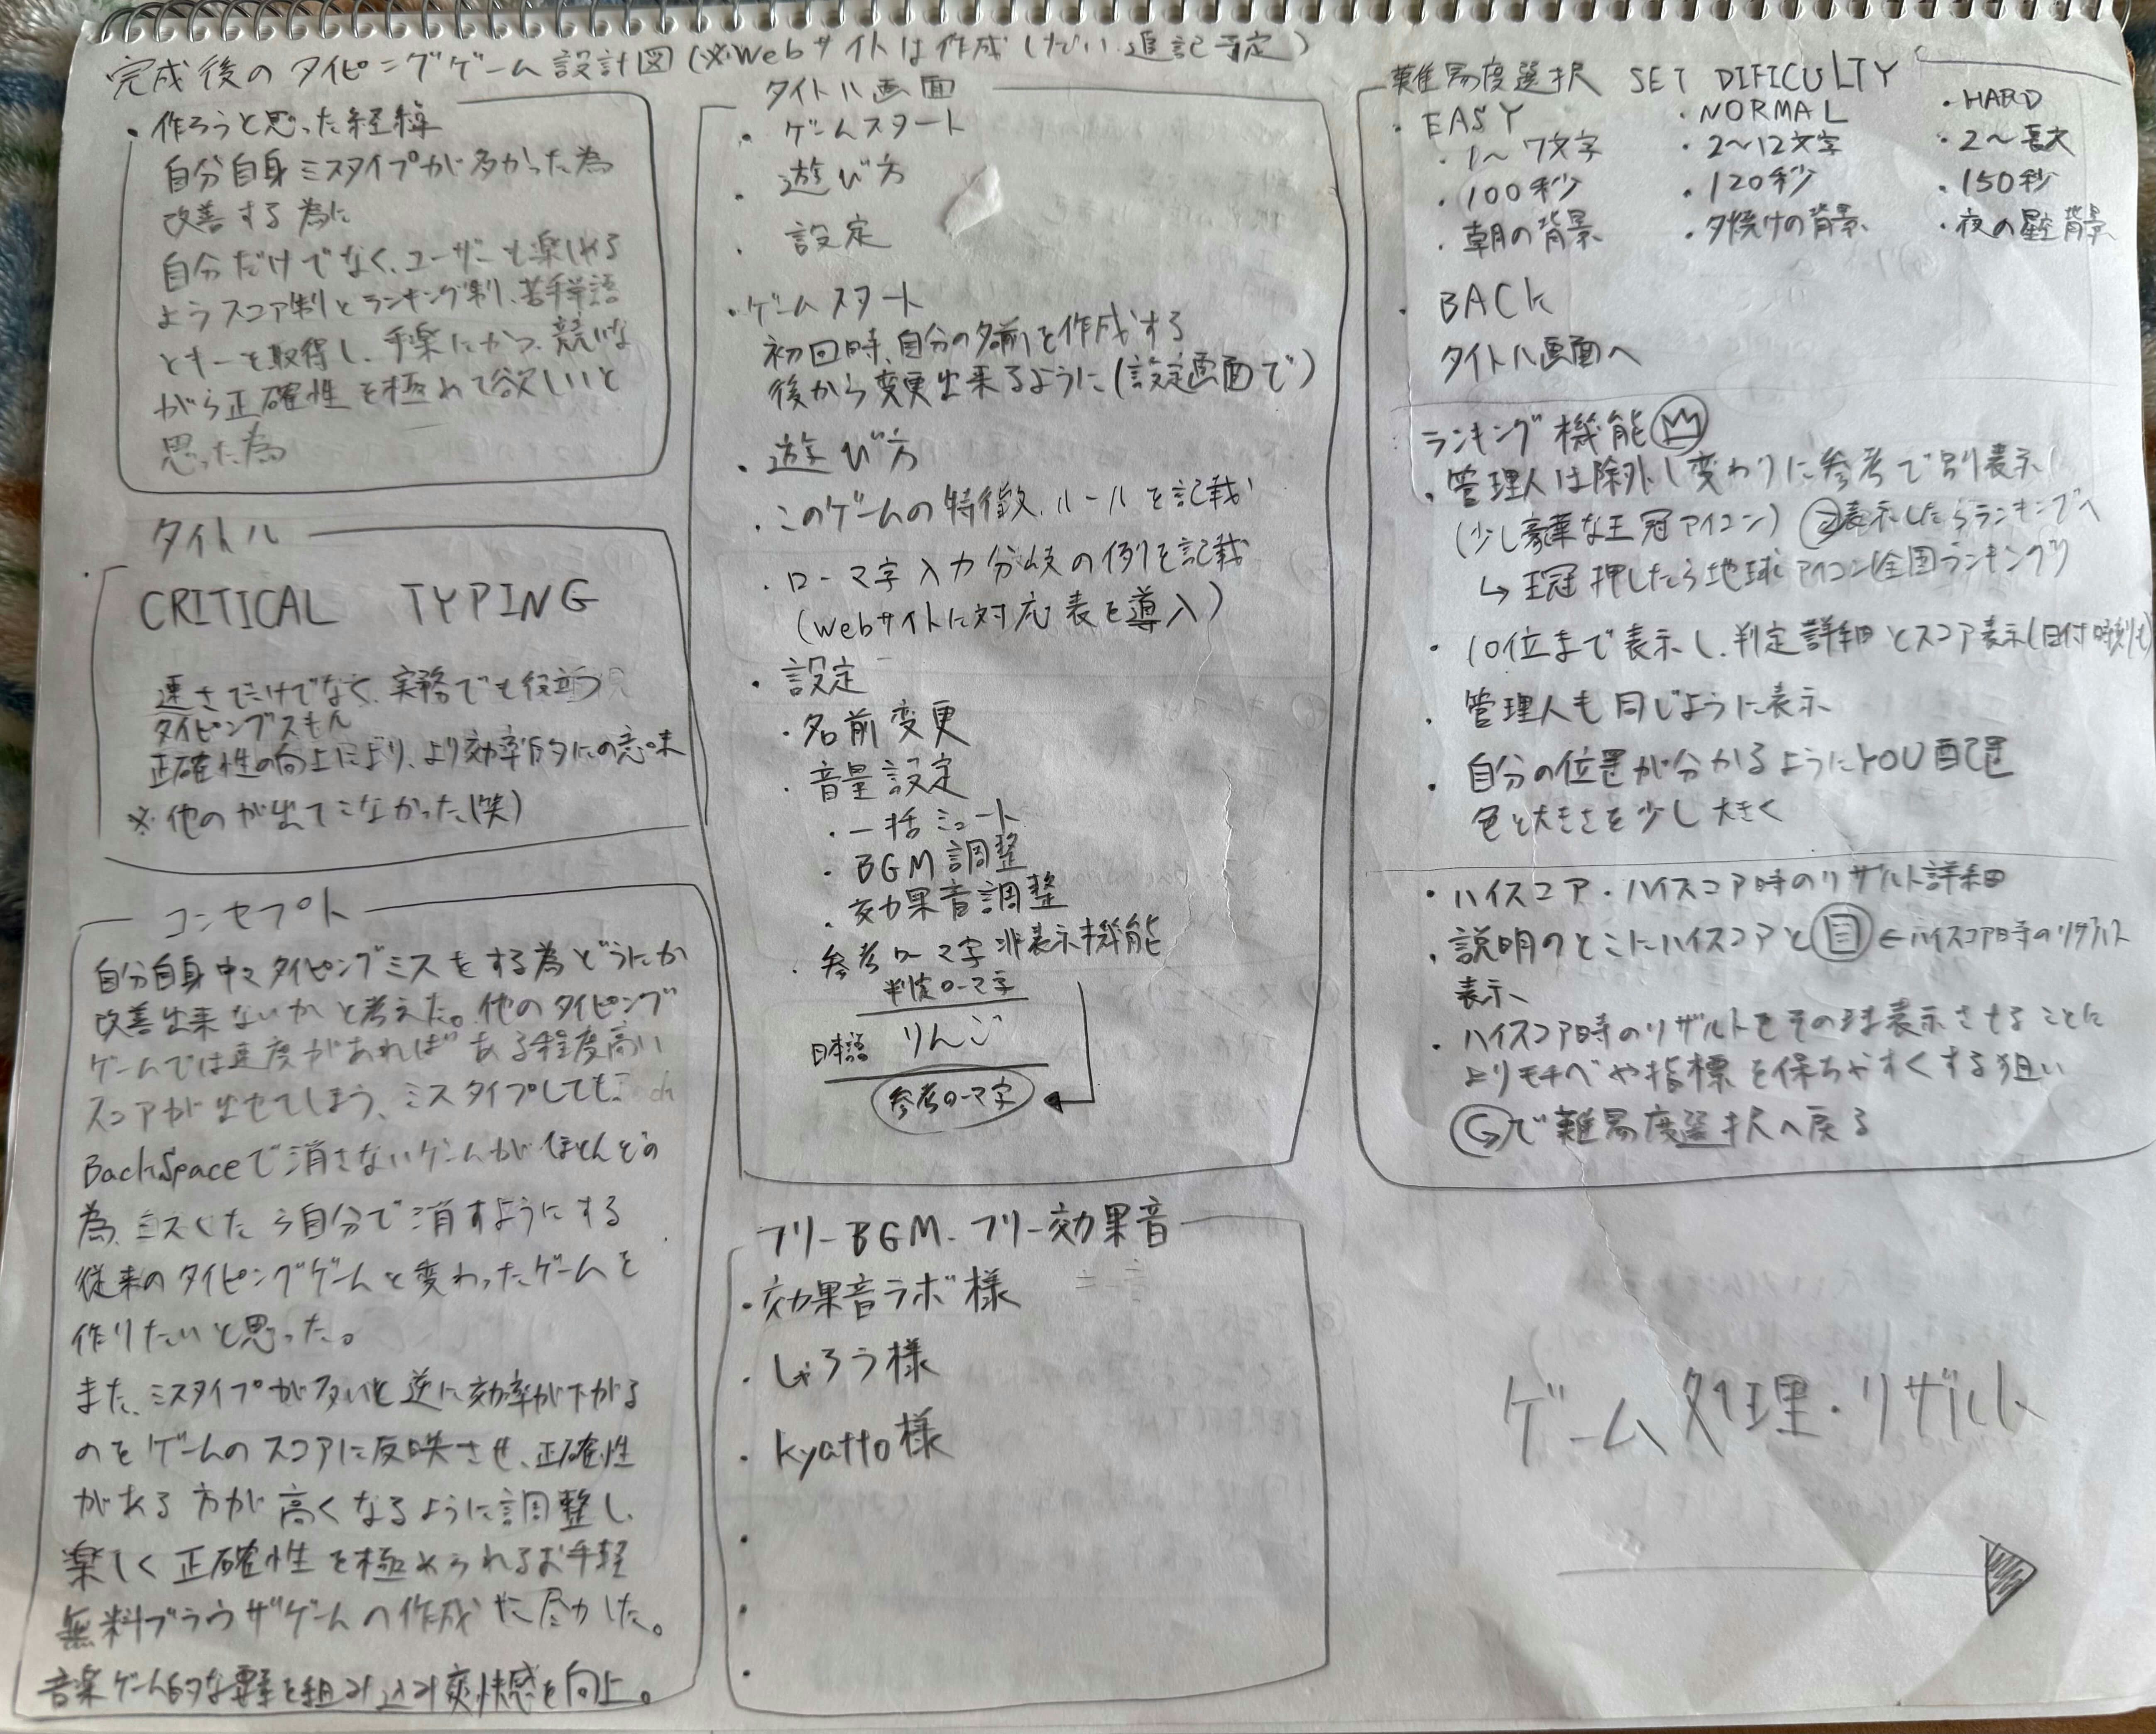 完成後のタイピングゲーム設計図(※Webサイトは作成しだい追記予定)
・作ろうと思った経緯
自分自身ミスタイプが多かった為
改善する為に
自分だけでなく、ユーザーも楽しめる
ようスコア制とランキング制、苦手単語
とキーを取得し、手楽にかつ、競いな
がら正確性を極めて欲しいと
思った為
タイトル
CRITICAL TYPING
速さでだけでなく、実務でも役立つ
タイピングスキル
正確性の向上により、より効率的にの意味
※他のが出てこなかった(笑)
コンセプト
自分自身中々タイピングミスをする為どうにか
改善出来ないかと考えた。他のタイピング
ゲームでは速度があればある程度高い
スコアが出せてしまう、ミスタイプしても
BackSpaceで消さないゲームがほとんどの
為、ミスしたら自分で消すようにする
従来のタイピングゲームと変わったゲームを
作りたいと思った。
また、ミスタイプが多いと逆に効率が下がる
のをゲームのスコアに反映させ、正確性
がある方が高くなるように調整し、
楽しく正確性を極められるお手軽
無料ブラウザゲームの作成に尽力した。
音楽ゲーム的な要素を組み込み爽快感を向上。
タイトル画面
・ゲームスタート
・遊び方
・設定
・ゲームスタート
初回時、自分の名前を作成する
後から変更出来るように(設定画面で)
・遊び方
・このゲームの特徴、ルールを記載
・ローマ字入力分岐の例を記載
(Webサイトに対応表を導入)
・設定
・名前変更
・音量設定
・一括ミュート
・BGM調整
・効果音調整
・参考ローマ字非表示機能
判定ローマ字
日本語 りんご
参考ローマ字
フリーBGM、フリー効果音
・効果音ラボ様
・しゃろう様
・kyatto様
・
・
・
難易度選択 SET DIFICULTY
・EASY ・NORMAL ・HARD
・1〜7文字 ・2〜12文字 ・2〜長文
・100秒 ・120秒 ・150秒
・朝の背景 ・夕焼けの背景 ・夜の星空背景
・BACK
タイトル画面へ
ランキング機能
・管理人は除外し変わりに参考で別表示
(少し豪華な王冠アイコン) 表示したらランキングへ
↳王冠押したら地球アイコン(全国ランキング)
・10位まで表示し、判定詳細とスコア表示(日付時刻も)
・管理人も同じように表示
・自分の位置が分かるようにYOU配置
色と大きさを少し大きく
・ハイスコア・ハイスコア時のリザルト詳細
・説明のとこにハイスコアと ←ハイスコア時のリザルト
表示、
・ハイスコア時のリザルトをそのまま表示させることに
よりモチベや指標を保ちやすくする狙い
で難易度選択へ戻る
ゲーム処理・リザルト